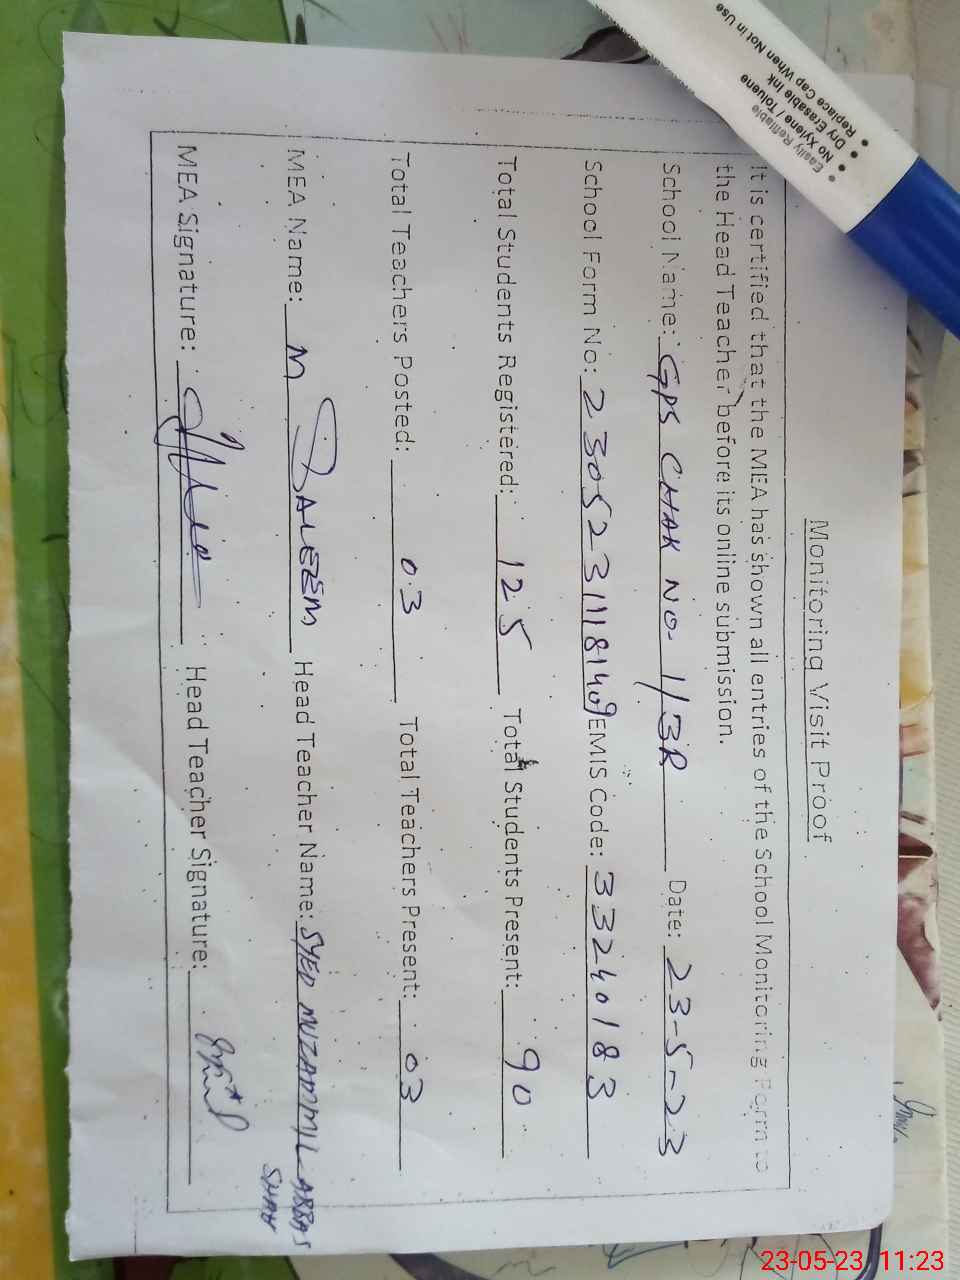 Monitoring Visit Proof
It is certified that the MEA has shown all entries of the School Monitoring Form to
the Head Teacher before its online submission.
School Name: GPS CHAK NO. 1/3R Date: 23-5-23
School Form No: 23052311181409 EMIS Code: 33240183
Total Students Registered: 125 Total Students Present: 90
Total Teachers Posted: 03 Total Teachers Present: 03
MEA Name: M SALEEM Head Teacher Name: SYED MUZAMMIL ABBAS
SHAH
MEA Signature: Head Teacher Signature:
Easily Refillable
No Xylene / Toluene
Dry Erasable Ink
Replace Cap When Not in Use
23-05-23 11:23